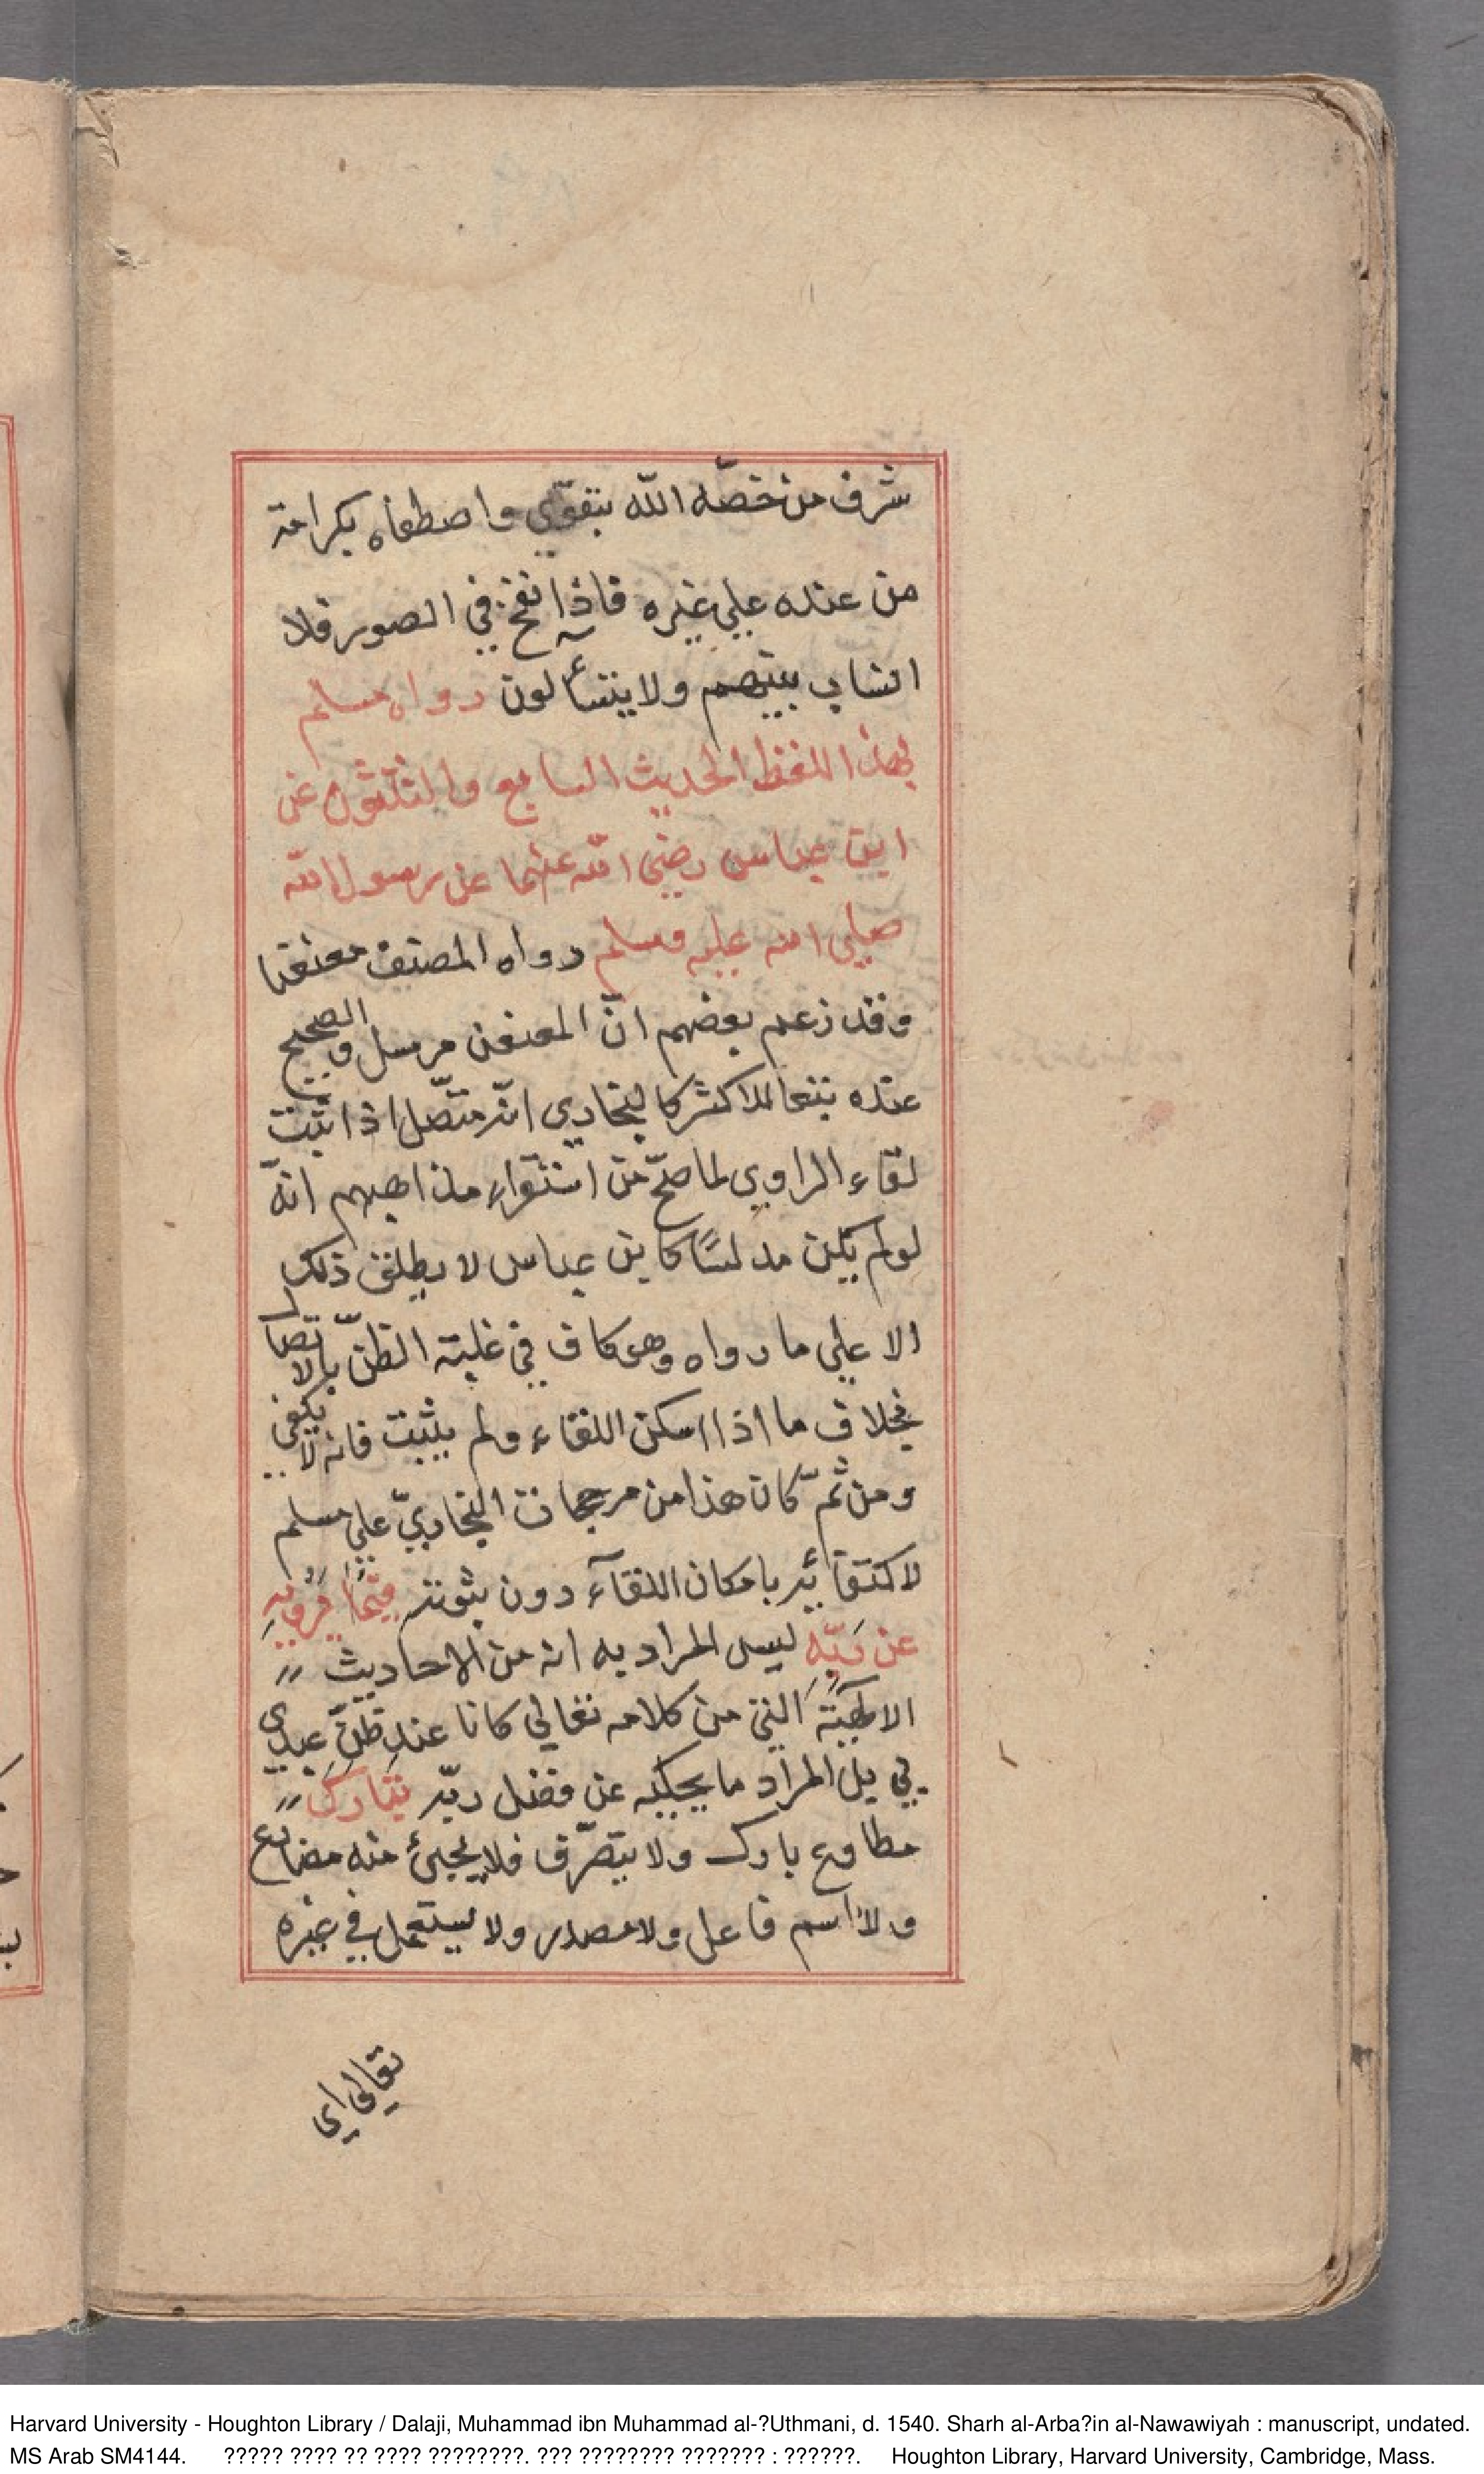 شرف من خصّه الله بتقوي واصطفاه بكرامة
من عنده علي غيره فاذا نفخ في الصور فلا
انساب بينهم ولا يتسآءلون رواه مسلم
بهذا اللفظ الحديث السابع والثلثون عن
ابن عباس رضي الله عنهما عن رسول الله
صلي الله عليه وسلم رواه المصنف معنعنا
وقد زعم بعضهم انّ المعنعن مرسل والصحيح
عنده تبعا للاكثر كالبخاري انّه متّصل اذا ثبت
لقاء الراوي لما صحّ من استقراء مذاهبهم انّه
لو لم يكن مدلسًا كابن عباس لا يطلق ذلك
الا علي ما رواه وهو كاف في غلبة الظنّ بالاتصال
بخلاف ما اذا امكن اللقاء ولم يثبت فانه لا يكفي
ومن ثمّ كان هذا من مرجحات البخاريّ علي مسلم
لاكتفائه بامكان اللقآء دون ثبوته فيما يرويه
عن ربّه ليس المراد به انه من الاحاديث
الالهيّة التي من كلامه تعالي كانا عند ظنّ عبدي
بي بل المراد ما يحكيه عن فضل ربّه تبارك
مطاوع بارك ولا يتصرّف فلا يجيئ منه مضارع
ولا اسم فاعل ولا مصدر ولا يستعمل في غيره
تعالي اي
Harvard University - Houghton Library / Dalaji, Muhammad ibn Muhammad al-?Uthmani, d. 1540. Sharh al-Arba?in al-Nawawiyah : manuscript, undated.
MS Arab SM4144. ????? ???? ?? ???? ????????. ??? ???????? ??????? : ??????. Houghton Library, Harvard University, Cambridge, Mass.